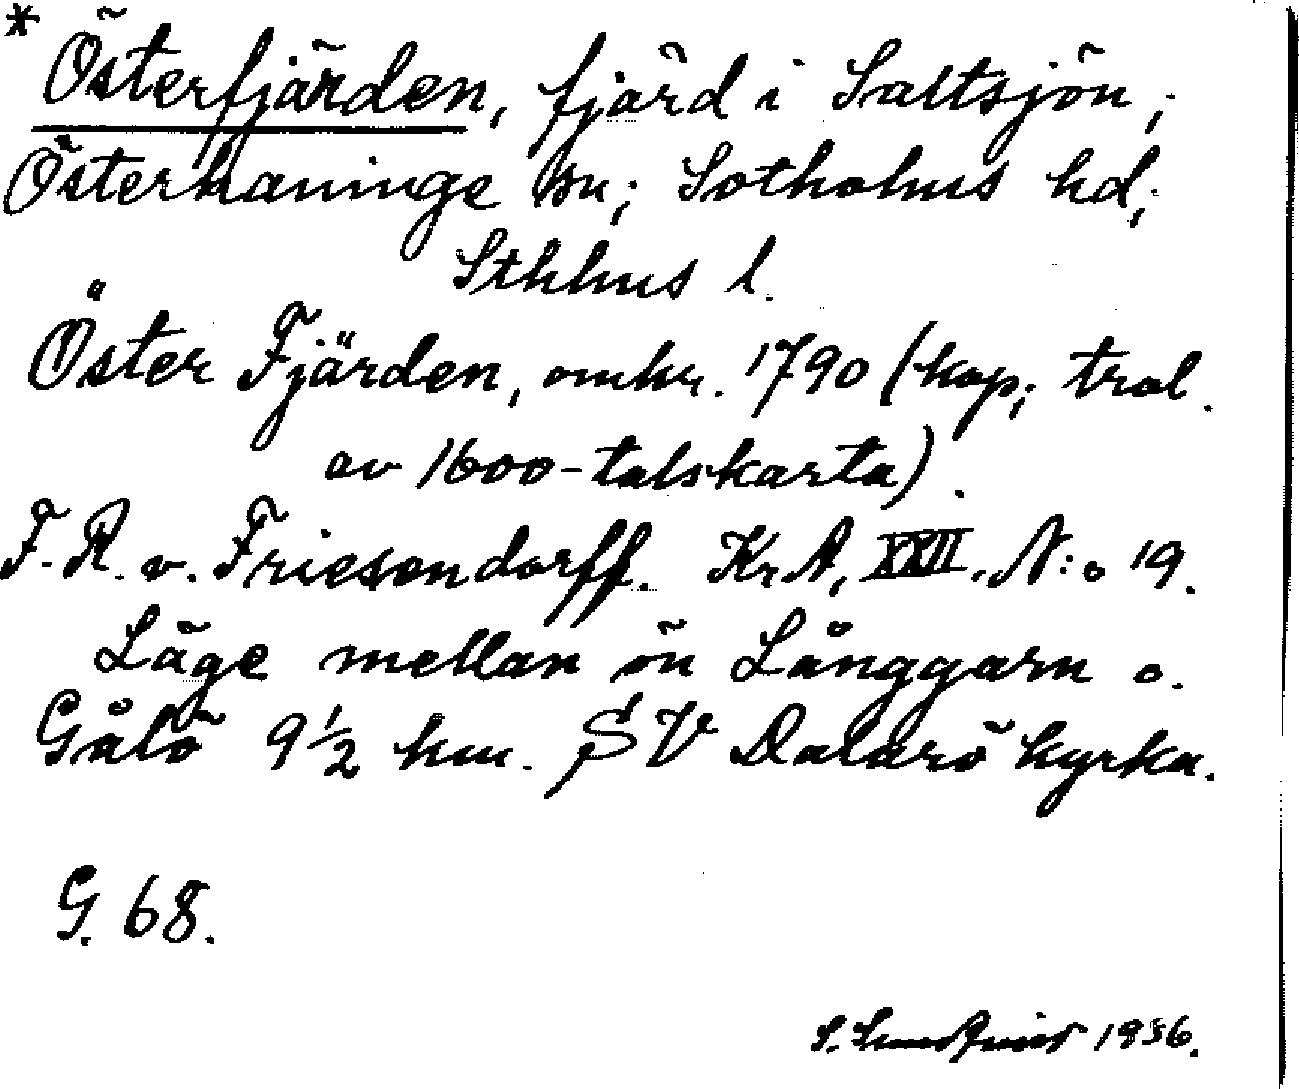 * Österfjärden, fjärd i Saltsjön,
Österhaninge sn; Sotholms hd,
Sthlms l.
Öster Fjärden, omkr. 1790 (kop; trol.
av 1600-talskarta).
F. R. v. Friesendorff. Kr A, XXII, N:o 19.
Läge mellan ön Långgarn o.
Gålö 9½ km. SV Dalarö kyrka.
G. 68.
S. Lundqvist 1936.